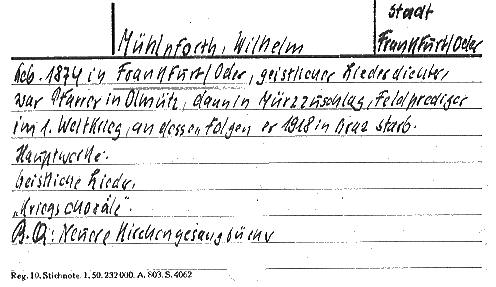 Stadt
Mühlnforth, Wilhelm Frankfurt/Oder
Geb. 1874 in Frankfurt/Oder, geistlicher Liederdichter,
war Pfarrer in Olmütz, dann in Mürzzuschlag, Feldprediger
im 1. Weltkrieg, an dessen Folgen er 1918 in Graz starb.
Hauptwerke:
Geistliche Lieder,
"Kriegschoräle".
B.Q.: Neuere Kirchengesangbücher
Reg. 10. Stichnote. 1. 50. 232000. A. 803. S. 4062